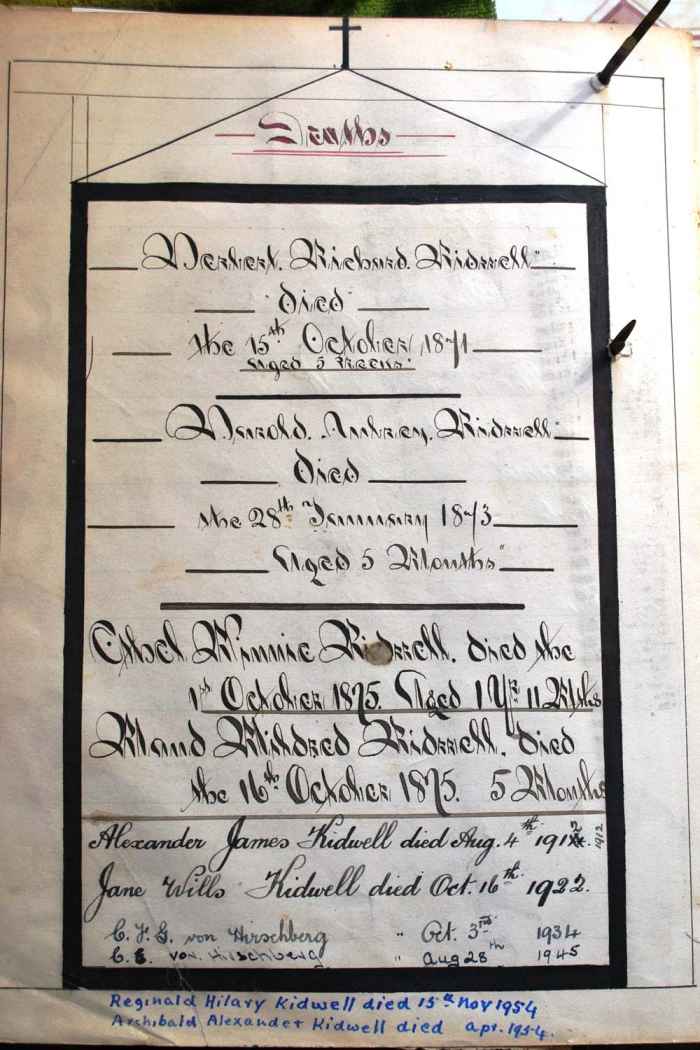 Deaths
Herbert. Richard. Kidwell"
"Died"
the 15th October, 1871
Aged 5 Weeks"
Harold. Aubrey. Kidwell"
Died
the 28th January 1873
Aged 5 Months"
Ethel Winnie Kidwell. died the
1st October 1875. Aged 1 Yr 11 Mths
Maud Mildred Kidwell. died
the 16th October 1875. 5 Months
Alexander James Kidwell died Aug. 4th 1912. 1912
Jane Wills Kidwell died Oct. 16th 1922.
C. F. G. von Hirschberg " Oct. 3rd 1934
C. E. von Hirschberg " Aug 28th 1945
Reginald Hilary Kidwell died 15th Nov 1954
Archibald Alexander Kidwell died apr. 1954.